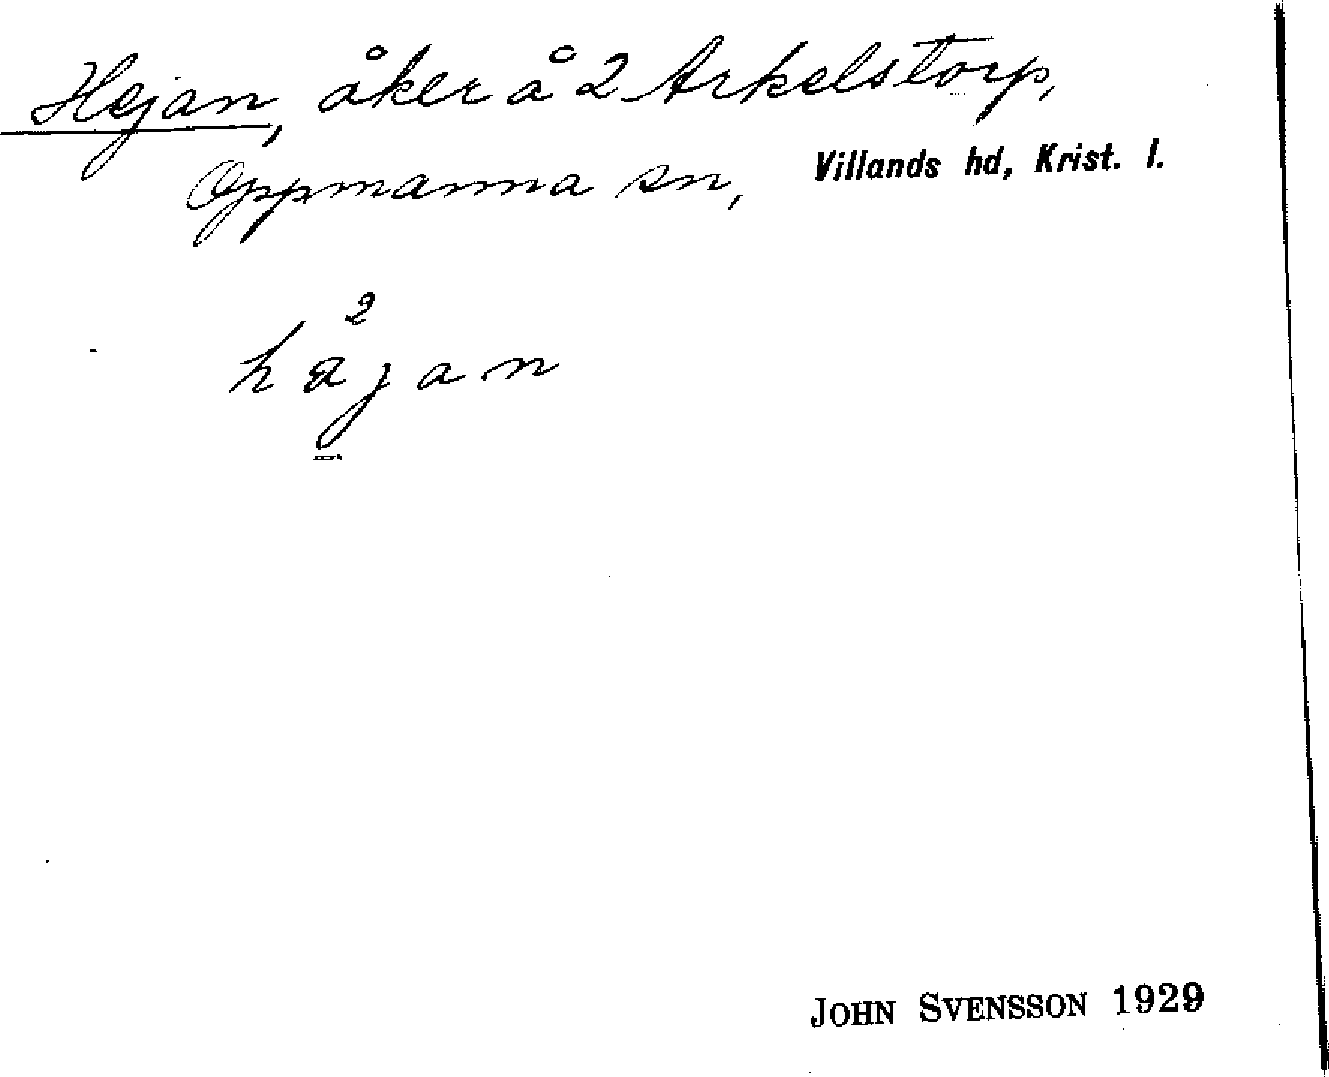 Hejan, åker å 2 Arkelstorp,
Oppmanna sn, Villands hd, Krist. l.
2
hajan
JOHN SVENSSON 1929